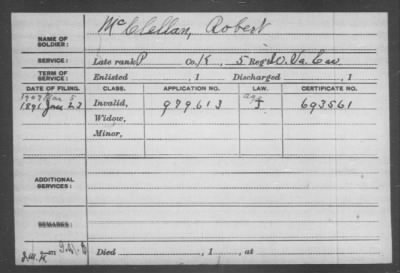 McClellan, Robert
NAME OF SOLDIER:
SERVICE: Late rank P Co. K, 5 Reg't W. Va. Cav.
TERM OF SERVICE: Enlisted , 1 Discharged , 1
DATE OF FILING. CLASS. APPLICATION NO. LAW. CERTIFICATE NO.
1907 Mar 5
1891 Jan 23 Invalid, 979.613 age J 693561
Widow,
Minor,
ADDITIONAL SERVICES:
REMARKS:
Died , 1 , at